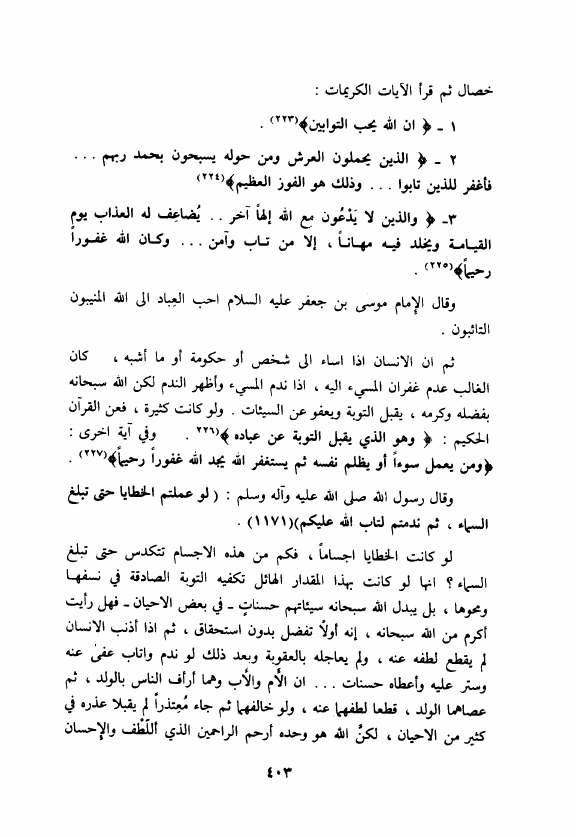 خصال ثم قرأ الآيات الكريمات :
١ - ﴿ ان الله يحب التوابين﴾(٢٢٣) .
٢ - ﴿ الذين يحملون العرش ومن حوله يسبحون بحمد ربهم ...
فأغفر للذين تابوا ... وذلك هو الفوز العظيم﴾(٢٢٤)
٣- ﴿ والذين لا يَدْعُون مع الله إلهاً آخر .. يُضاعِف له العذاب يوم
القيامة ويخلد فيه مهاناً ، إلا من تاب وآمن ... وكان الله غفوراً
رحيماً﴾(٢٢٥) .
وقال الإمام موسى بن جعفر عليه السلام احب العِباد الى الله المنيبون
التائبون .
ثم ان الانسان اذا اساء الى شخص أو حكومة أو ما أشبه ، كان
الغالب عدم غفران المسيء اليه ، اذا ندم المسيء وأظهر الندم لكن الله سبحانه
بفضله وكرمه ، يقبل التوبة ويعفو عن السيئات . ولو كانت كثيرة ، فعن القرآن
الحكيم : ﴿ وهو الذي يقبل التوبة عن عباده ﴾(٢٢٦ . وفي آية اخرى :
﴿ومن يعمل سوءاً أو يظلم نفسه ثم يستغفر الله يجد الله غفوراً رحيماً﴾(٢٢٧) .
وقال رسول الله صلى الله عليه وآله وسلم : ( لو عملتم الخطايا حتى تبلغ
السماء ، ثم ندمتم لتاب الله عليكم)(١١٧١) .
لو كانت الخطايا اجساماً ، فكم من هذه الاجسام تتكدس حتى تبلغ
السماء ؟ انها لو كانت بهذا المقدار الهائل تكفيه التوبة الصادقة في نسفها
ومحوها ، بل يبدل الله سبحانه سيئاتهم حسناتٍ - في بعض الاحيان - فهل رأيت
أكرم من الله سبحانه ، إنه أولاً تفضل بدون استحقاق ، ثم اذا أذنب الانسان
لم يقطع لطفه عنه ، ولم يعاجله بالعقوبة وبعد ذلك لو ندم واتاب عفىٰ عنه
وستر عليه وأعطاه حسنات ... ان الأُم والأب وهما أرأف الناس بالولد ، ثم
عصاهما الولد ، قطعا لطفهما عنه ، ولو خالفهما ثم جاء مُعِتذراً لم يقبلا عذره في
كثير من الاحيان ، لكنَّ الله هو وحده أرحم الراحمين الذي أللّطْف والإحسان
٤٠٣